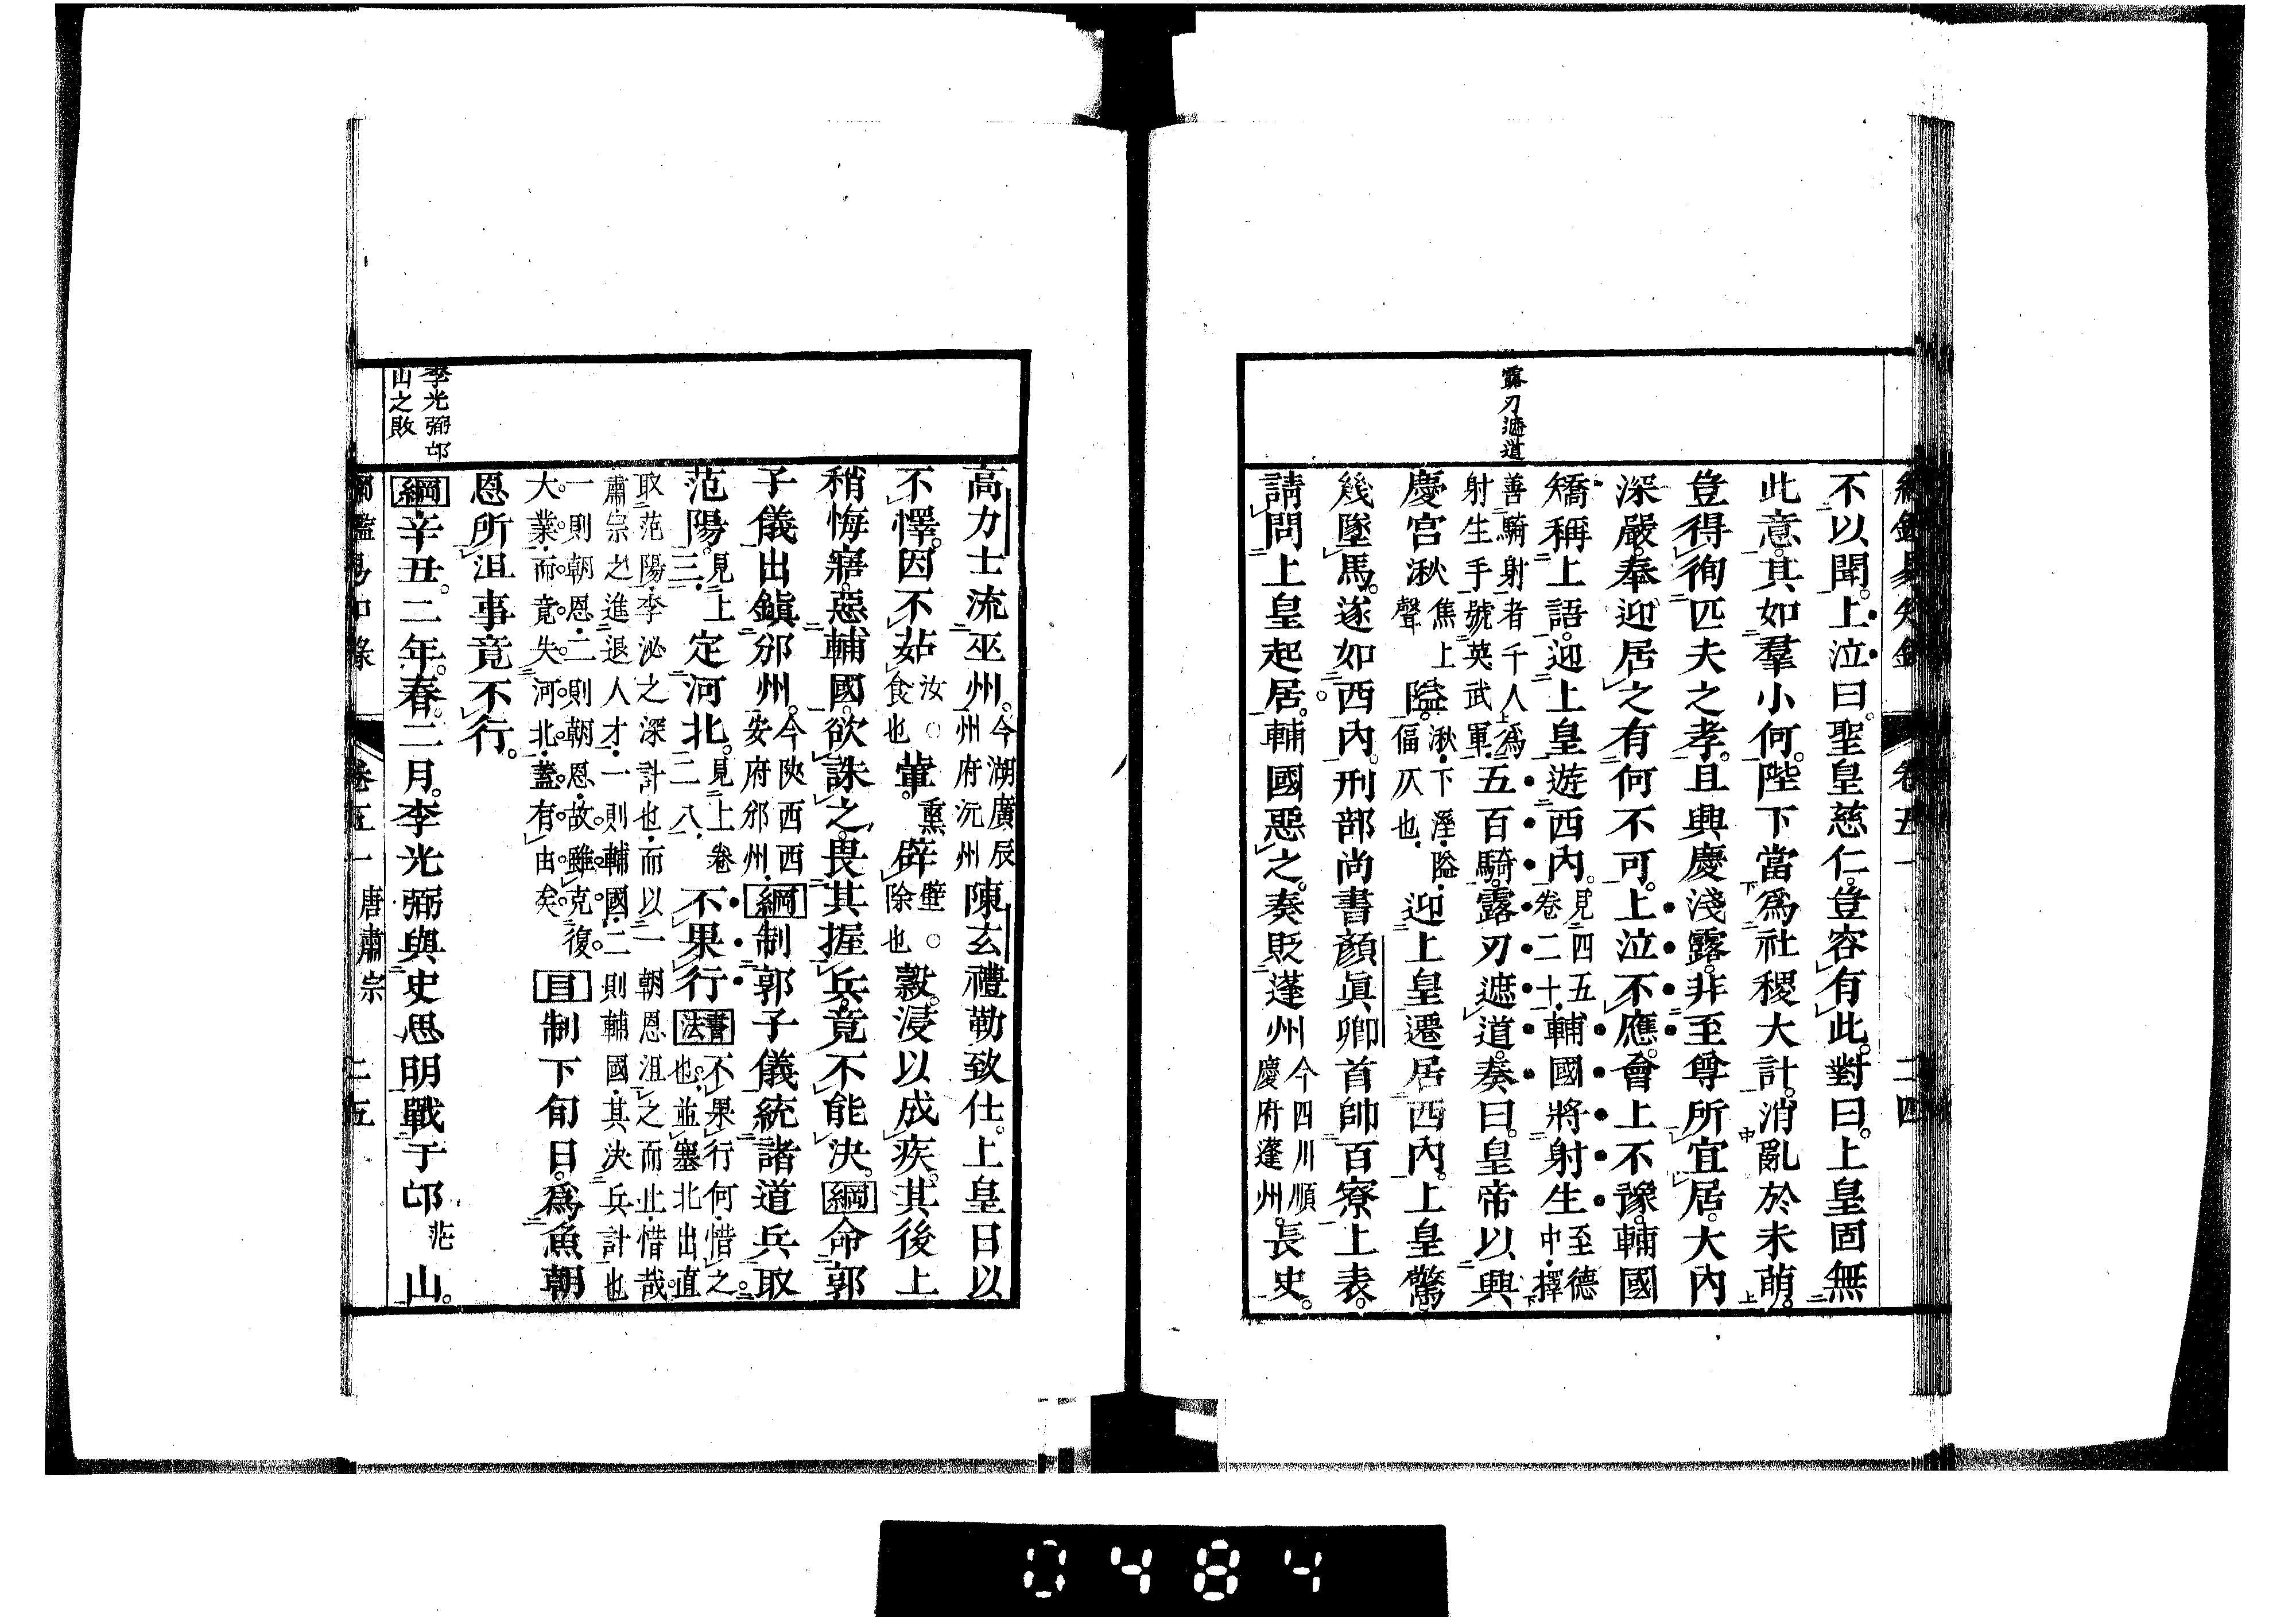 綱鑑易知錄 卷五一 二四
露刃遮道
不以聞。上泣曰。聖皇慈仁。豈容有此。對曰。上皇固無
此意。其如羣小何。陛下當爲社稷大計。消亂於未萌。
豈得徇匹夫之孝。且興慶淺露。非至尊所宜居。大內
深嚴。奉迎居之。有何不可。上泣不應。會上不豫。輔國
矯稱上語。迎上皇遊西內。見四五卷二十。輔國將射生至德中擇
善騎射者千人爲射生手號英武軍。五百騎。露刃遮道。奏曰。皇帝以興
慶宮湫焦上聲隘。湫下溼隘偪仄也。迎上皇遷居西內。上皇驚。
幾墜馬。遂如西內。刑部尚書顏眞卿首帥百寮上表。
請問上皇起居。輔國惡之。奏貶蓬州今四川順慶府蓬州。長史。
高力士流巫州。今湖廣辰州府沅州陳玄禮勒致仕。上皇日以
不懌。因不茹汝○食也葷。熏辟壁○除也穀。浸以成疾。其後上
稍悔寤。惡輔國。欲誅之。畏其握兵。竟不能決。綱命郭
子儀出鎭邠州。今陝西西安府邠州。綱制郭子儀統諸道兵取
范陽。見上三定河北。見上卷二八不果行書法不果行何惜之也並塞北出直
取范陽李泌之深計也而以一朝恩沮之而止惜哉
肅宗之進退人才一則輔國二則輔國其決兵計也
一則朝恩二則朝恩故雖克復
大業而竟失河北蓋有由矣目制下旬日。爲魚朝
恩所沮。事竟不行。
李光弼邙
山之敗
綱辛丑。二年。春。二月。李光弼與史思明戰于邙茫山。
綱鑑易知錄 卷五一 唐肅宗 二五
0484